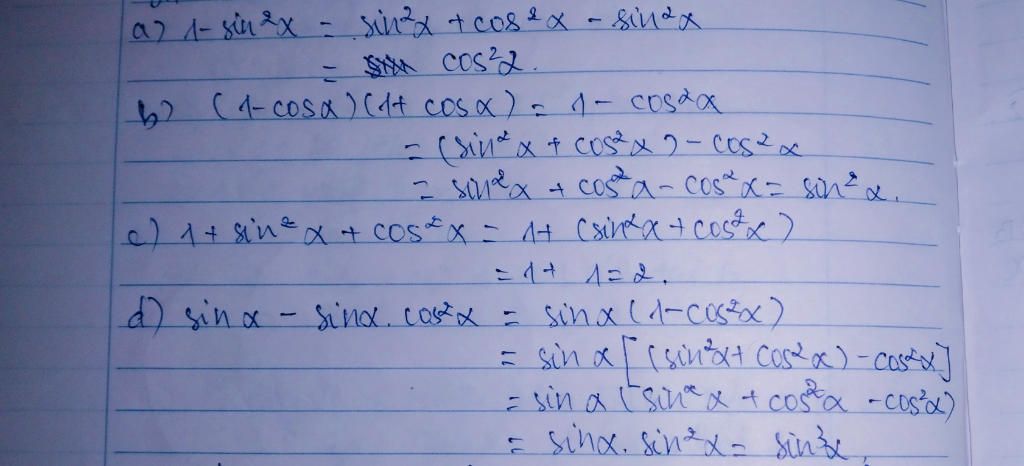 a) 1 - sin²α = sin²α + cos²α - sin²α
= cos²α.
b) (1 - cosα)(1 + cosα) = 1 - cos²α
= (sin²α + cos²α) - cos²α
= sin²α + cos²α - cos²α = sin²α.
c) 1 + sin²α + cos²α = 1 + (sin²α + cos²α)
= 1 + 1 = 2.
d) sin α - sinα. cos²α = sin α (1 - cos²α)
= sin α [(sin²α + cos²α) - cos²α]
= sin α (sin²α + cos²α - cos²α)
= sinα. sin²α = sin³α